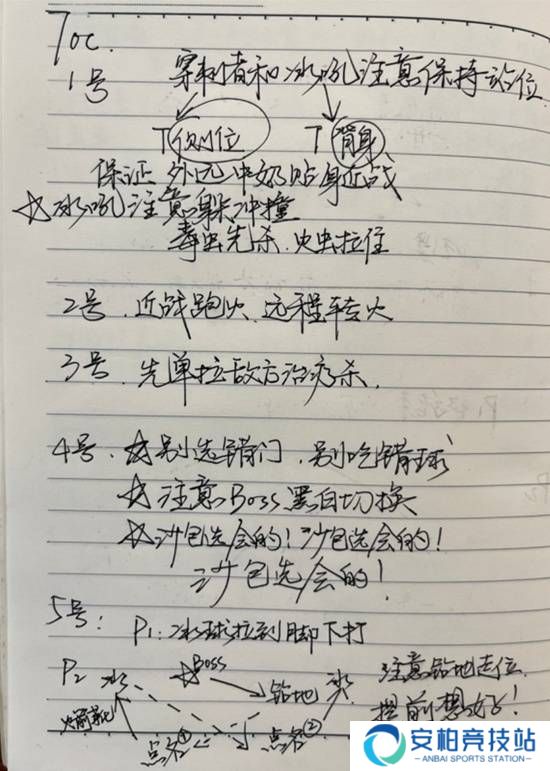 Toc.
1号 穿刺者和冰吼注意保持站位
T侧位 T背身
保证 外 中 贴身近战
☆冰吼注意躲冲撞
毒虫先杀.火虫拉住
2号.近战跑火、远程转火
3号.先单拉敌方治疗杀.
4号.☆别选错门.别吃错球
☆注意Boss黑白切换
☆沙包选会的!沙包选会的!
沙包选会的!
5号: P1:冰球拉到脚下打
P2 冰 ☆Boss 钻地 冰 注意钻地走位
火箭靴 点名① 点名② 提前想好!
安柏竞技站
ANBAI SPORTS STATION